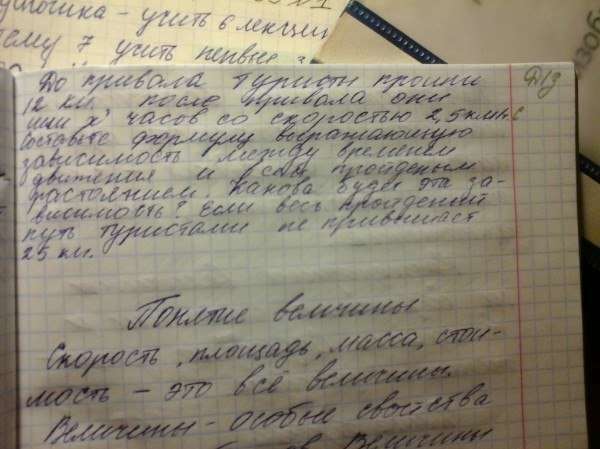 учить 6 лекции
7 учить первые
До привала туристы прошли
12 км. после привала они
шли х часов со скоростью 2,5 км/ч
составьте формулу выражающую
зависимость между временем
движения и всем пройденым
растоянием. Какова будет эта за-
висимость? Если весь пройденый
путь туристами не привышает
25 км.
Д/з
Понятие величины
Скорость, площадь, масса, стои-
мость – это всё величины.
Величины – особые свойства
Величины